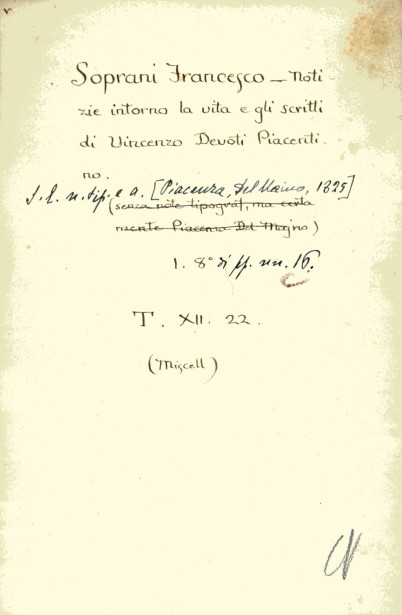 Soprani Francesco — Noti-
zie intorno la vita e gli scritti
di Vincenzo Devoti Piacenti-
no.
S. l. n. tip. e a. [Piacenza, Del Maino, 1825]
(senza note tipograf, ma certa
mente Piacenza Del Majno)
1. 8° di pp. nn. 16.
T. XII. 22.
(Miscell)